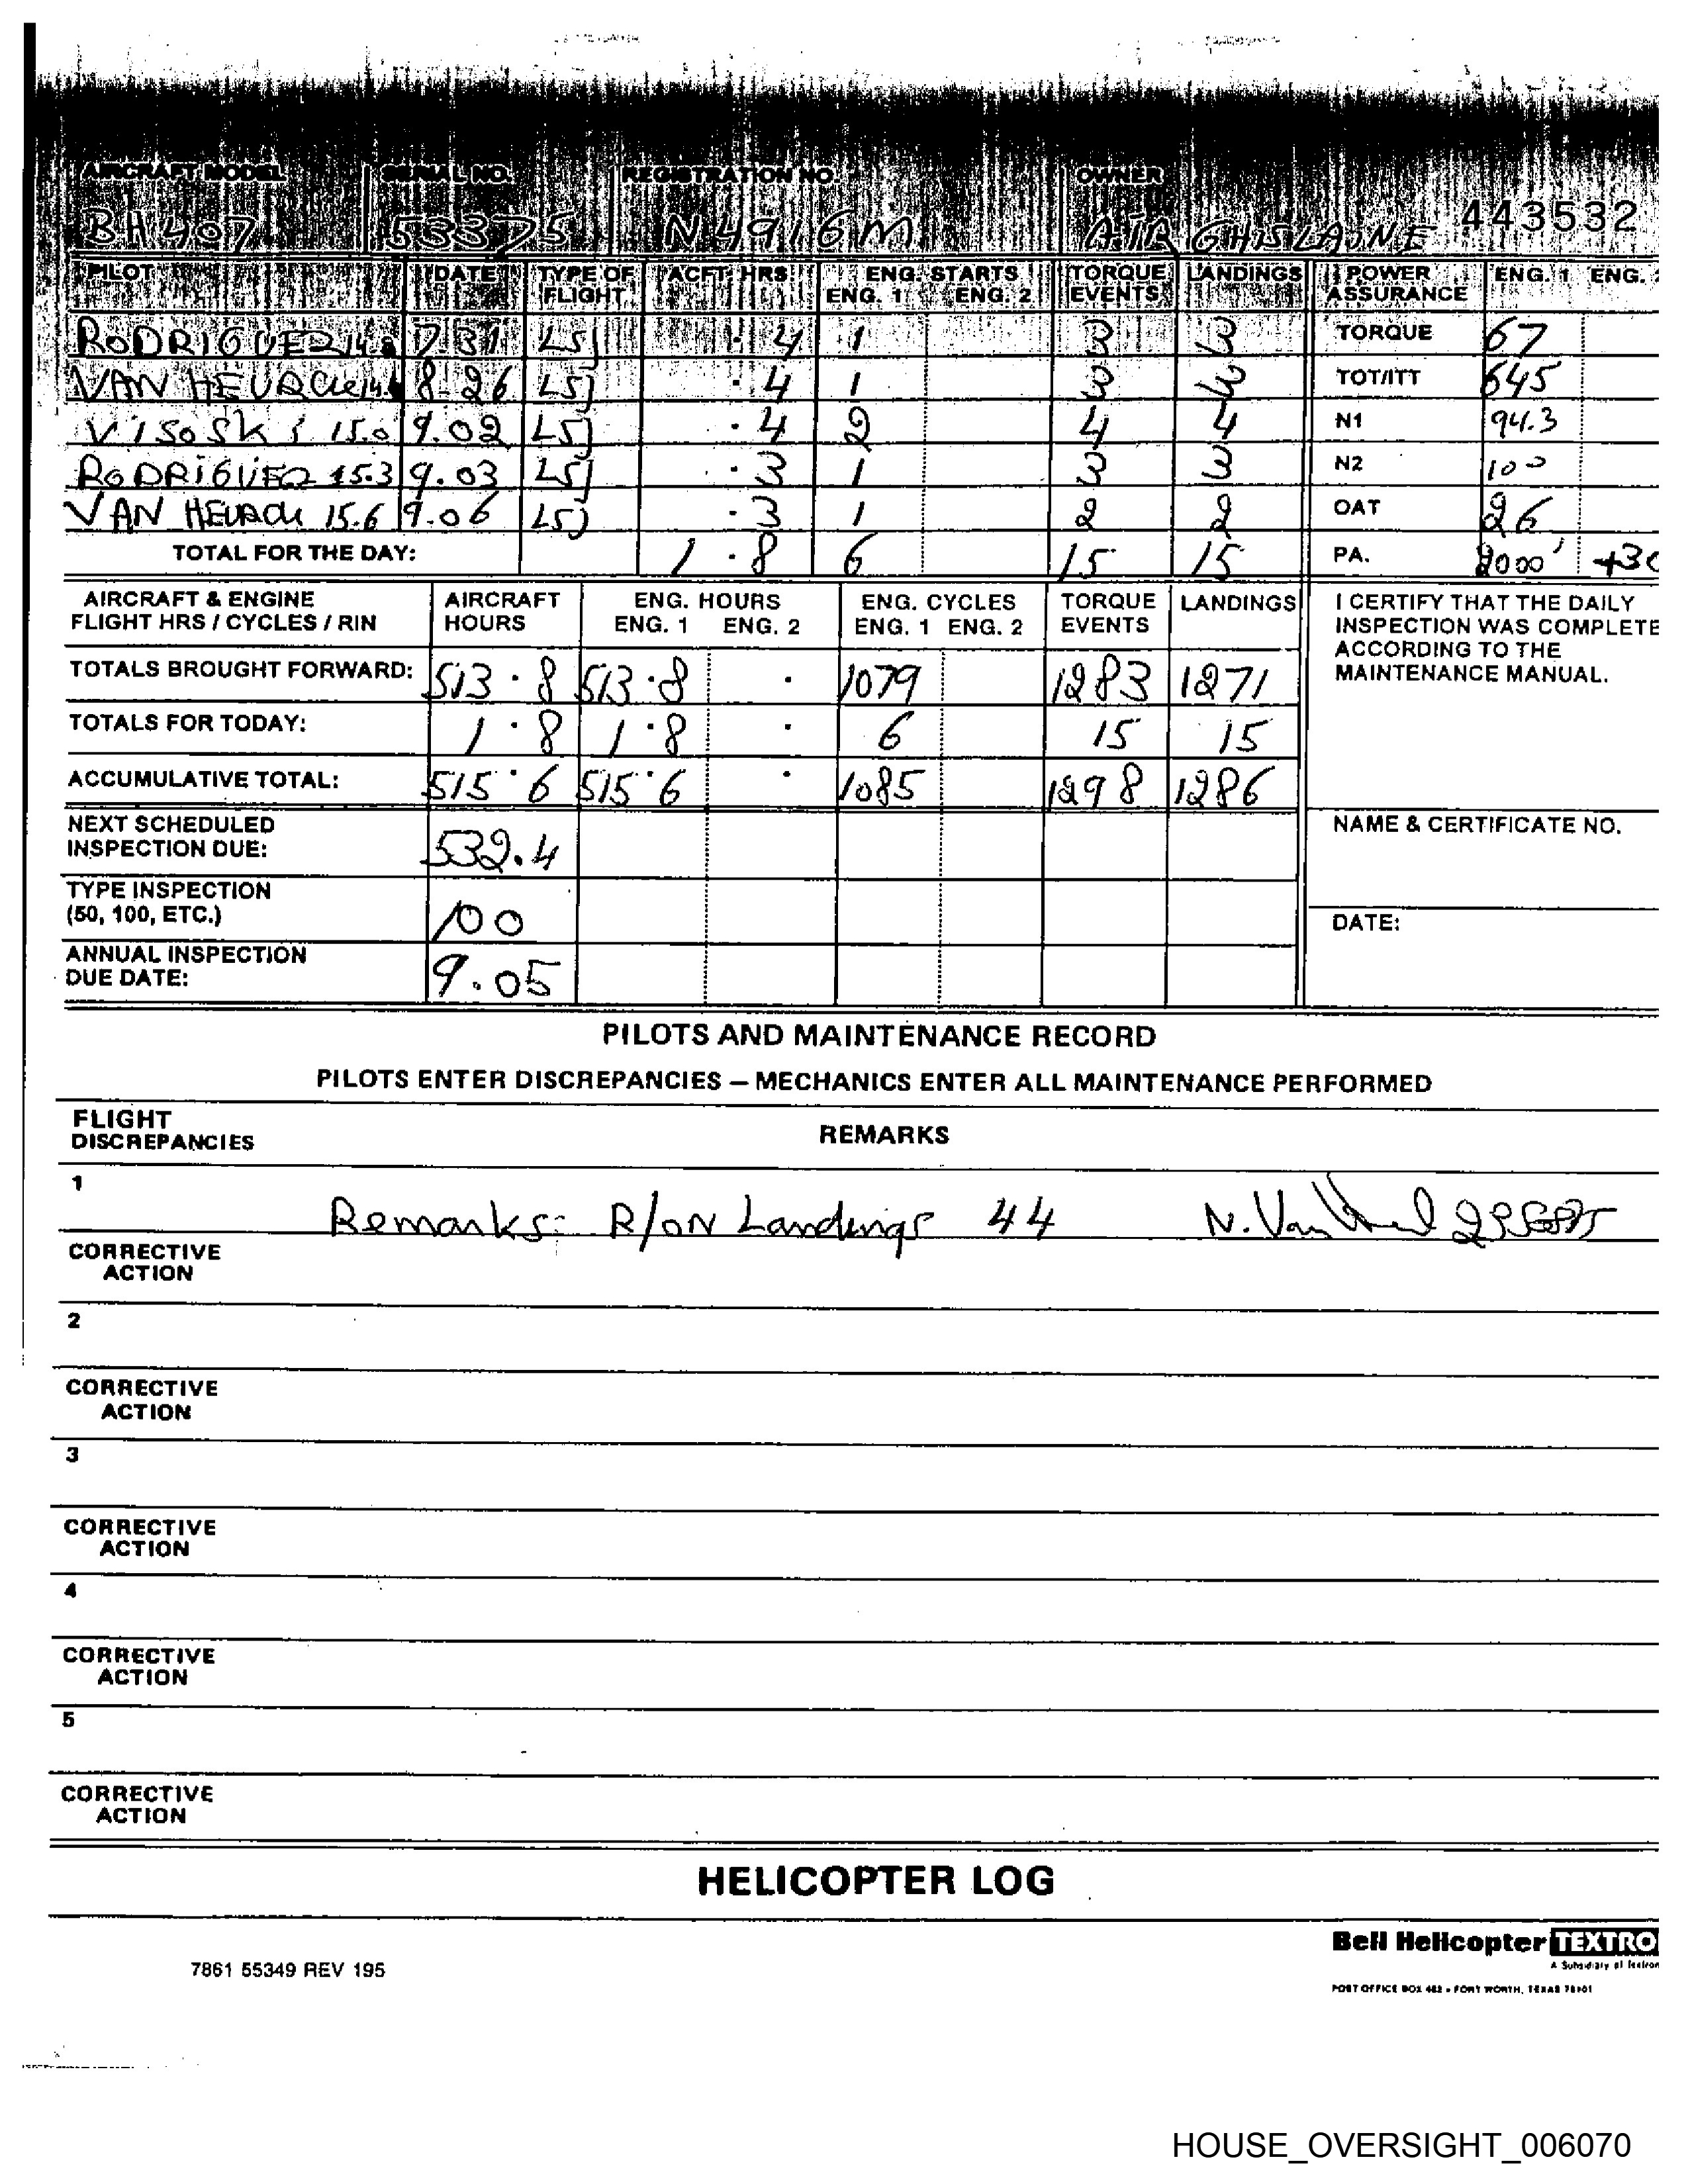 AIRCRAFT MODEL SERIAL NO. REGISTRATION NO. OWNER
BH407 53375 N4916M AIR GHISLAINE 443532
PILOT DATE TYPE OF FLIGHT ACFT. HRS ENG. STARTS ENG. 1 ENG. 2 TORQUE EVENTS LANDINGS POWER ASSURANCE ENG. 1 ENG.
RODRIGUEZ 7.31 LSJ .4 1 3 3 TORQUE 67
VAN HEUACH 8.26 LSJ .4 1 3 3 TOT/ITT 645
VISOSKi 15.0 9.02 LSJ .4 2 4 4 N1 94.3
RODRIGUEZ 15.3 9.03 LSJ .3 1 3 3 N2 100
VAN HEUACH 15.6 9.06 LSJ .3 1 2 2 OAT 26
TOTAL FOR THE DAY: 1.8 6 15 15 PA. 2000' +30
AIRCRAFT & ENGINE FLIGHT HRS / CYCLES / RIN AIRCRAFT HOURS ENG. HOURS ENG. 1 ENG. 2 ENG. CYCLES ENG. 1 ENG. 2 TORQUE EVENTS LANDINGS
I CERTIFY THAT THE DAILY
INSPECTION WAS COMPLETE
ACCORDING TO THE
MAINTENANCE MANUAL.
TOTALS BROUGHT FORWARD: 513.8 513.8 . 1079 1283 1271
TOTALS FOR TODAY: 1.8 1.8 . 6 15 15
ACCUMULATIVE TOTAL: 515.6 515.6 . 1085 1298 1286
NEXT SCHEDULED INSPECTION DUE: 532.4
NAME & CERTIFICATE NO.
TYPE INSPECTION (50, 100, ETC.) 100
DATE:
ANNUAL INSPECTION DUE DATE: 9.05
PILOTS AND MAINTENANCE RECORD
PILOTS ENTER DISCREPANCIES – MECHANICS ENTER ALL MAINTENANCE PERFORMED
FLIGHT DISCREPANCIES REMARKS
1
Remarks: R/ON Landings 44 N. Van
CORRECTIVE
ACTION
2
CORRECTIVE
ACTION
3
CORRECTIVE
ACTION
4
CORRECTIVE
ACTION
5
CORRECTIVE
ACTION
HELICOPTER LOG
Bell Helicopter TEXTRO
A Subsidiary of Textron
7861 55349 REV 195
POST OFFICE BOX 482 • FORT WORTH, TEXAS 76101
HOUSE_OVERSIGHT_006070